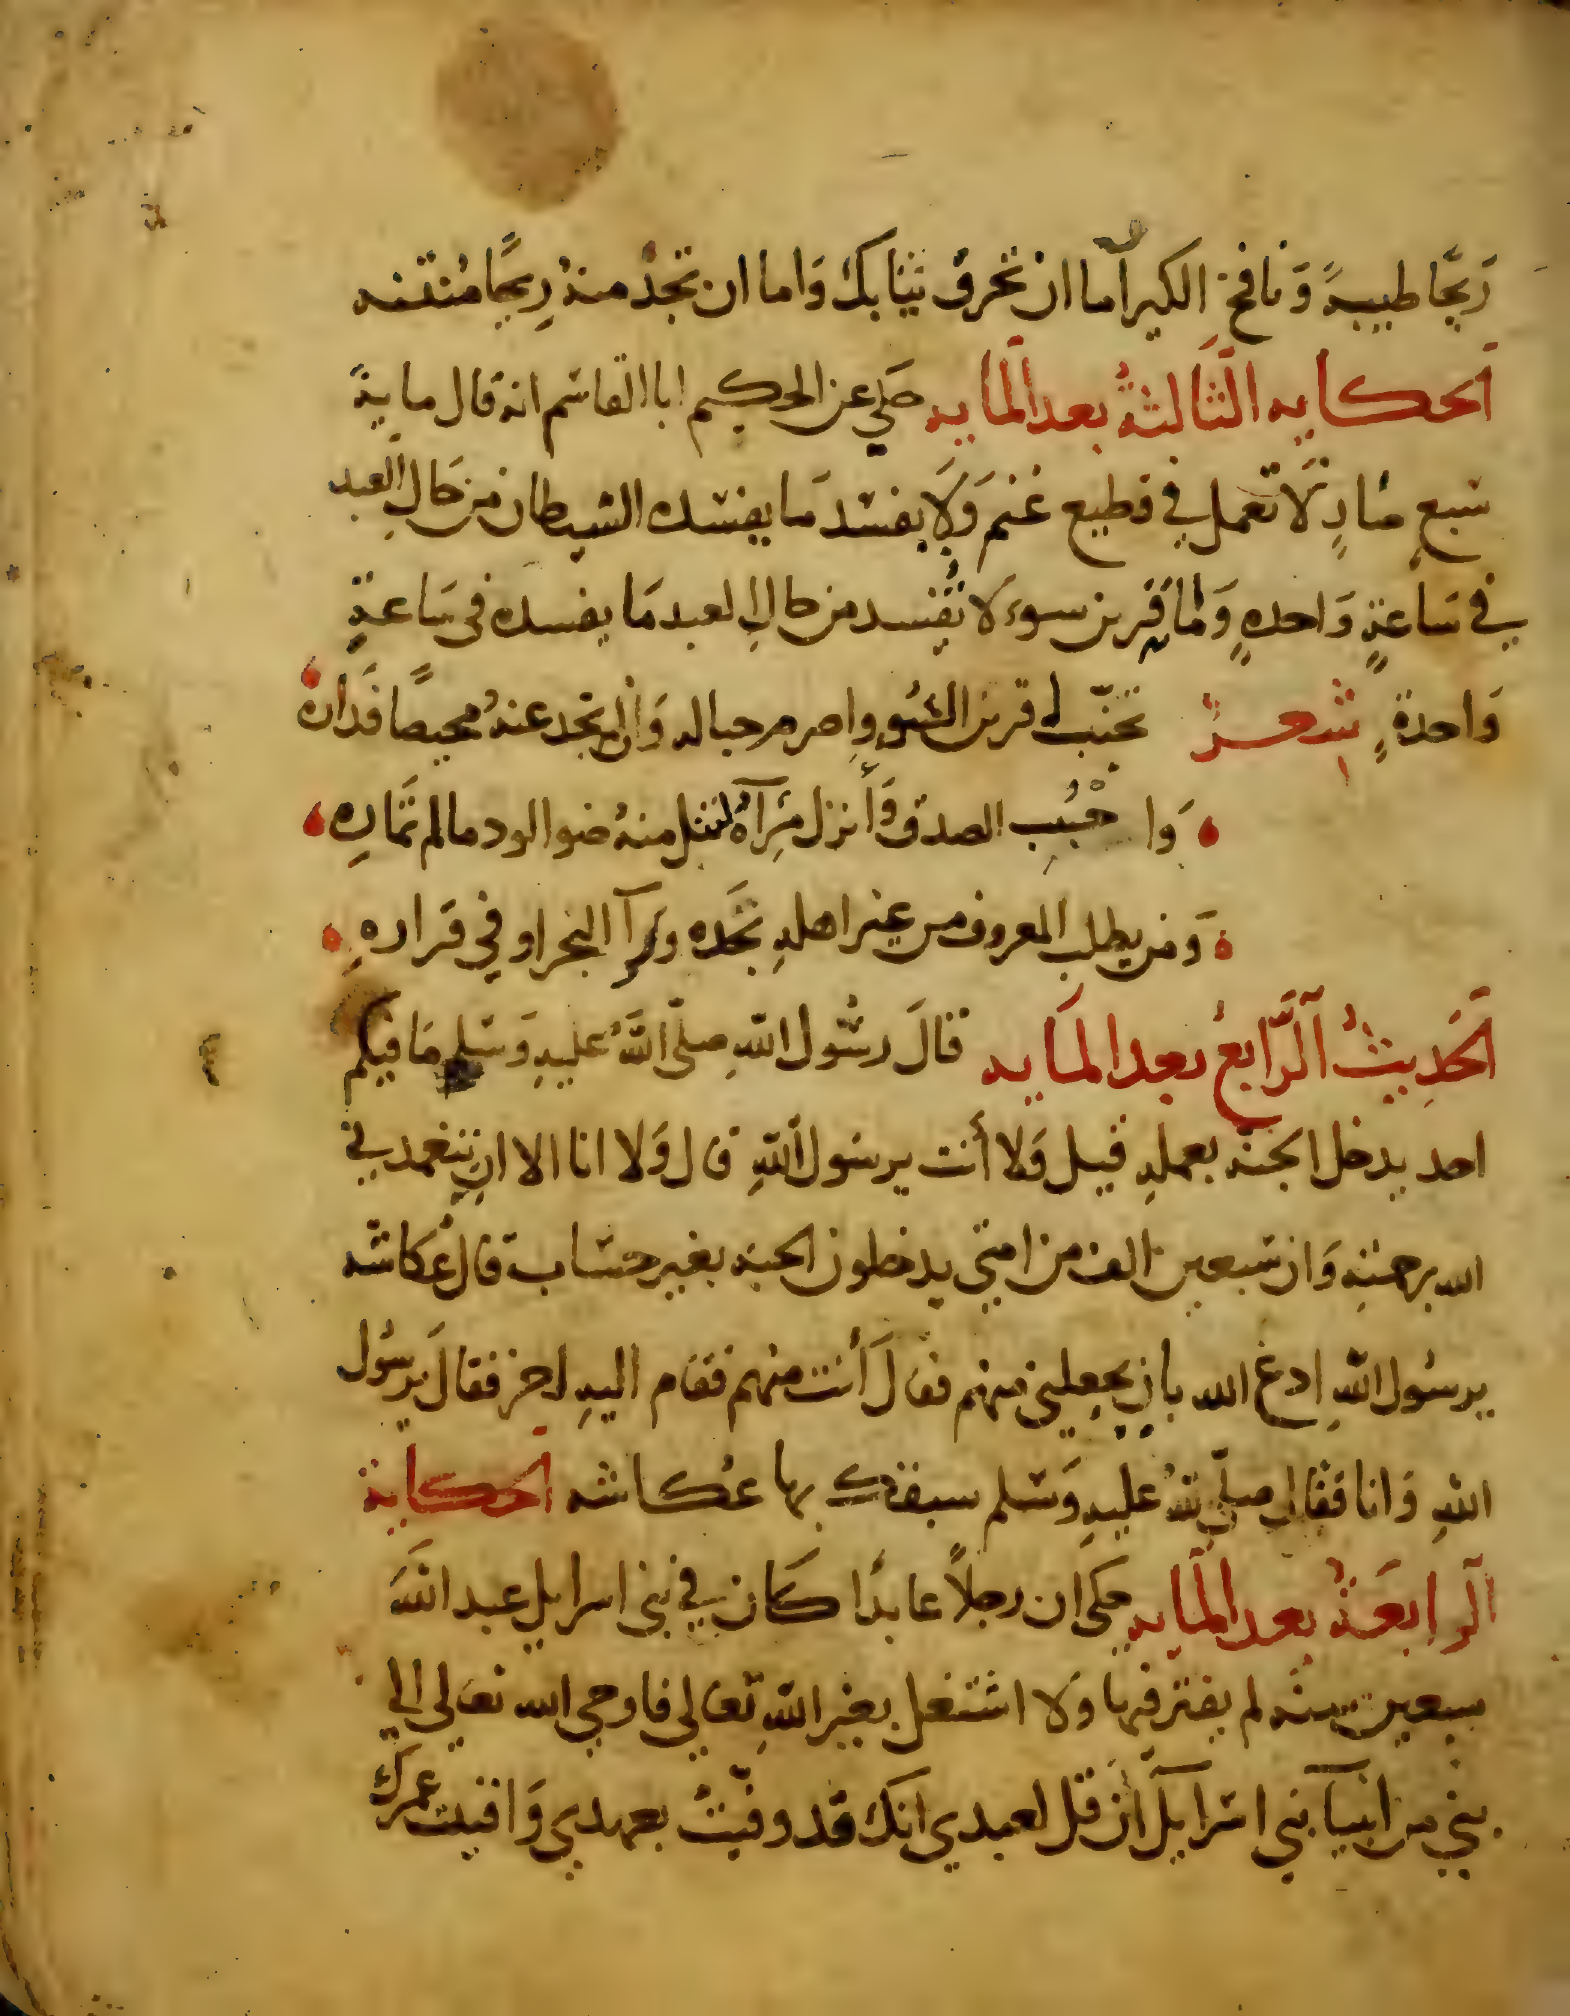 رَيحًا طيبةً وَنافخ الكيرامّا ان تحرق ثيابك وَاما ان تجدُ منهُ رِيحًا مُنتنه
اَلحكايه الثَّالثةُ بعد المايه حكي عن الحكيم ابا القاسم انه قال ماية
سبع ضارٍ لَا تعمل في قطيع غنم وَلَا يفسد مَا يفسده الشيطان من حَالِ العبد
في سَاعةٍ وَاحدهٍ وَماية قرين سوء لَا تفسد من حالِ العبد مَا يفسده في سَاعةٍ
وَاحدةٍ شعرٌ تجنّب قرين السُوءِ واصرم حباله وَان لم تجد عنهُ محيصًا فَدَاره
وَا حْبُب الصدق وَأنزل مِرَآهُ تنل منهُ صفوا الود مالم تمَاره
وَمن يطلب المعروف من غير اهلهِ تجَده ورَآ البحر او في قراره
اَلحَدِيثُ اَلرَّابعُ بعد المَايه قالَ رسُول اللهِ صلّى اللهُ عليهِ وَسَلم مَا فيكم
احد يدخل الجنة بعملهِ قيل وَلا أنت يرسَول اللهِ قال وَلا انا الا ان يتغمدني
الله برحمتهِ وَان سَبعين الف من امتي يدخلون الجنه بغير حسَاب قال عُكاشه
يرسُول اللهِ ادعُ الله بان يجعلني منهم فقالَ أنت منهم فقام اليهِ اخر فقالَ يرسُول
اللهِ وَانا فقال صلّي اللهُ عليهِ وَسَلم سبقك بها عُكاشه اَلحكاية
اَلرابعَةُ بعد المايه حكي ان رجلاً عابدًا كَان في بني اسرايل عبد اللهَ
سبعين سنه لم يفتر فيها وَلا اشتغل بغير اللهِ تعالي فاوحي الله تعالي الي
نبي من انبيآ بني اسرَايلَ ان قل لعبدي انك قد وفيّتُ بعهدي وَافنيت عمرك